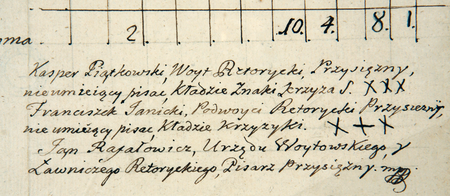 oma 2. 10. 4. 8. 1.
Kasper Piątkowski, Woyt Retorycki, Przysiężny,
nie umiejący pisac kładzie Znaki Krzyża S. XXX
Franciszek Janicki, Podwoyci Retorycki Przysiężny,
nie umiejący pisac kładzie Krzyzyki. X + X
Jan Rafałowicz, Urzędu Woytowskiego, y
Ławniczego Retoryckiego, Pisarz Przysiężny. mp